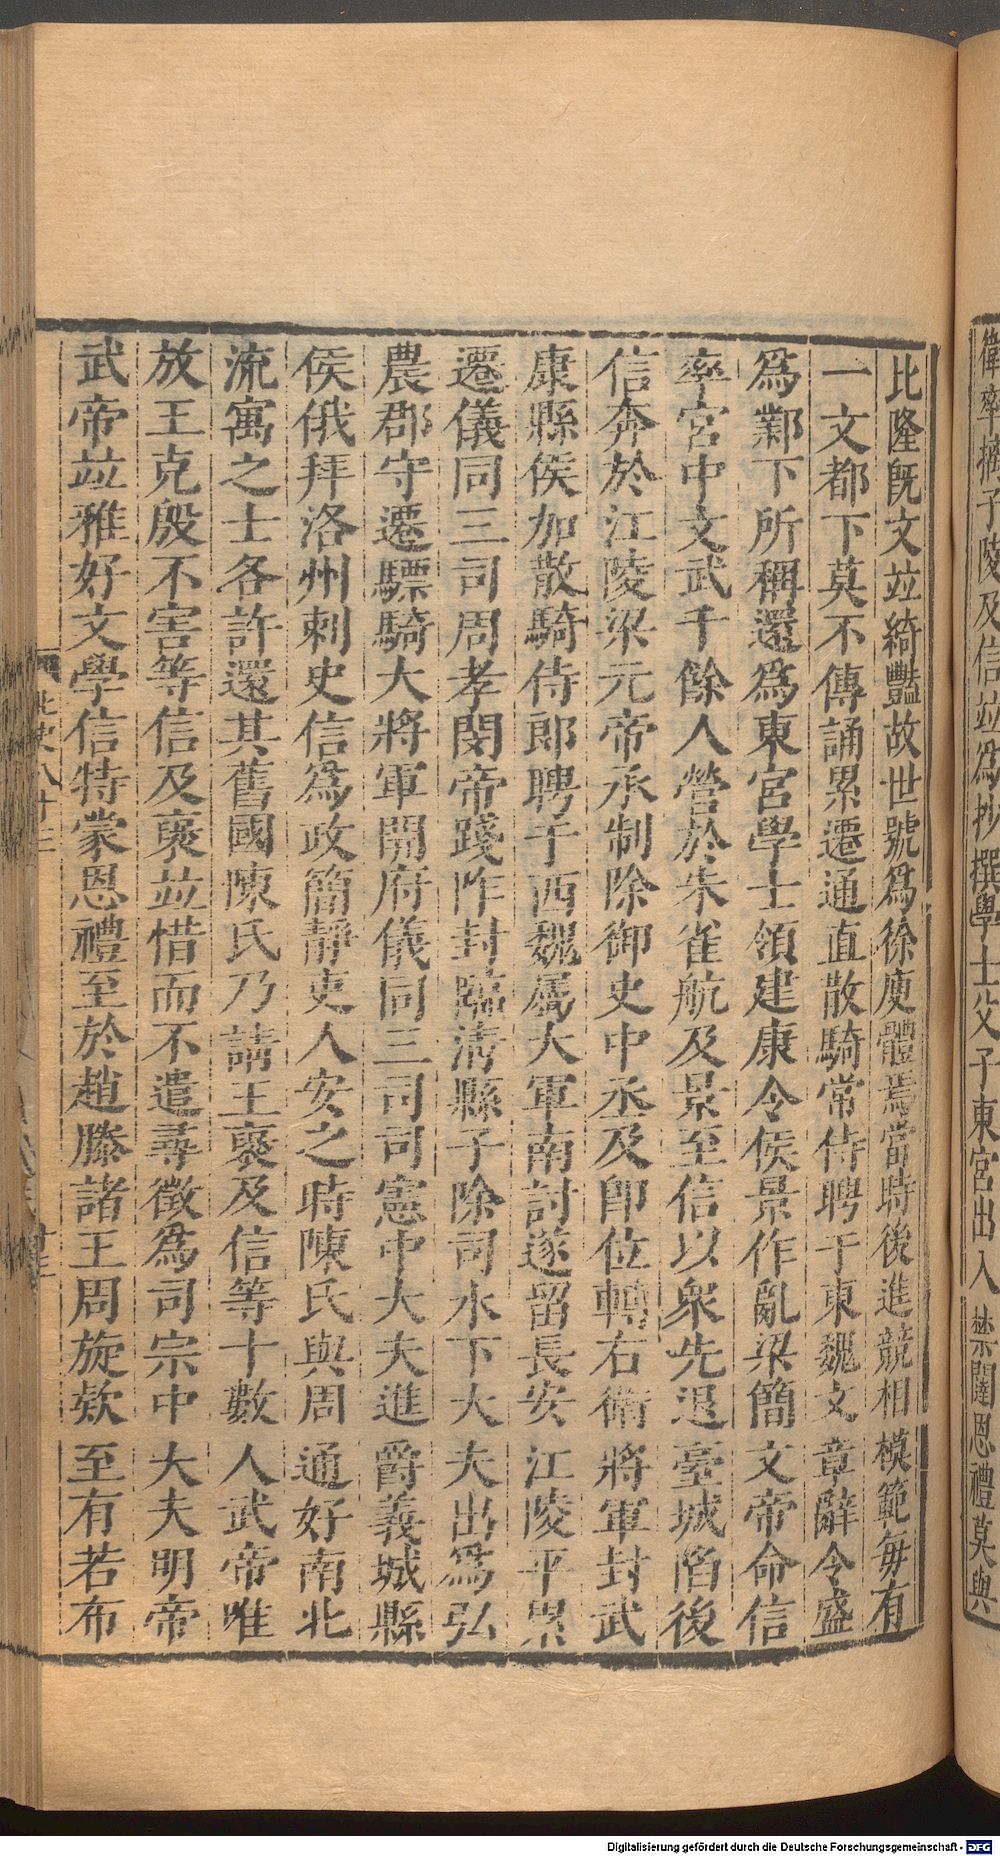 衞率摛子陵及信並爲抄撰學士父子東宮出入禁闥恩禮莫與
比隆旣文並綺豔故世號爲徐庾體焉當時後進競相模範每有
一文都下莫不傳誦累遷通直散騎常侍聘于東魏文章辭令盛
爲鄴下所稱還爲東宮學士領建康令侯景作亂梁簡文帝命信
率宮中文武千餘人營於朱雀航及景至信以衆先退臺城陷後
信奔於江陵梁元帝承制除御史中丞及卽位轉右衛將軍封武
康縣侯加散騎侍郎聘于西魏屬大軍南討遂留長安江陵平累
遷儀同三司周孝閔帝踐阼封臨淸縣子除司水下大夫出爲弘
農郡守遷驃騎大將軍開府儀同三司司憲中大夫進爵義城縣
侯俄拜洛州刺史信爲政簡靜吏人安之時陳氏與周通好南北
流寓之士各許還其舊國陳氏乃請王褒及信等十數人武帝唯
放王克殷不害等信及褒並惜而不遣尋徵爲司宗中大夫明帝
武帝並雅好文學信特蒙恩禮至於趙滕諸王周旋欵至有若布
北史八十三
十三
Digitalisierung gefördert durch die Deutsche Forschungsgemeinschaft - DFG